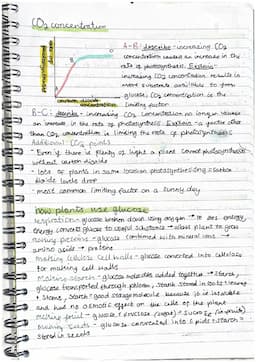 CO2 concentration
A-B: describe - increasing CO2
concentration causes an increase in the
rate of photosynthesis. Explain -
increasing CO2 concentration results in
more available to form
glucose. CO2 concentration is the
limiting factor
carbon dioxide concentration
B-C: describe - increasing CO2 concentration no longer causes
an increase in the rate of photosynthesis. Explain - a factor other
than CO2 concentration is limiting the rate of photosynthesis
Additional CO2 points
- Even if there is plenty of light a plant cannot photosynthesise
without carbon dioxide
- lots of plants in same location photosynthesising = carbon
dioxide levels drop
- most common limiting factor on a sunny day
how plants use glucose
Respiration - glucose broken down using oxygen → release energy,
energy converts glucose to useful substances → allows plant to grow
Making proteins - glucose combined with mineral ions →
amino acids → protein
Making cellulose cell walls - glucose converted into cellulose
for making cell walls
Making starch - glucose molecules added together → starch,
glucose transported through phloem, starch stored in roots, leaves
+ stems, starch = good storage molecule because it is insoluble
and had no osmotic effect on the cells of the plant
Making fruit - glucose + fructose (sugar) → sucrose
Making seeds - glucose converted into lipids + starch =
stored in seeds